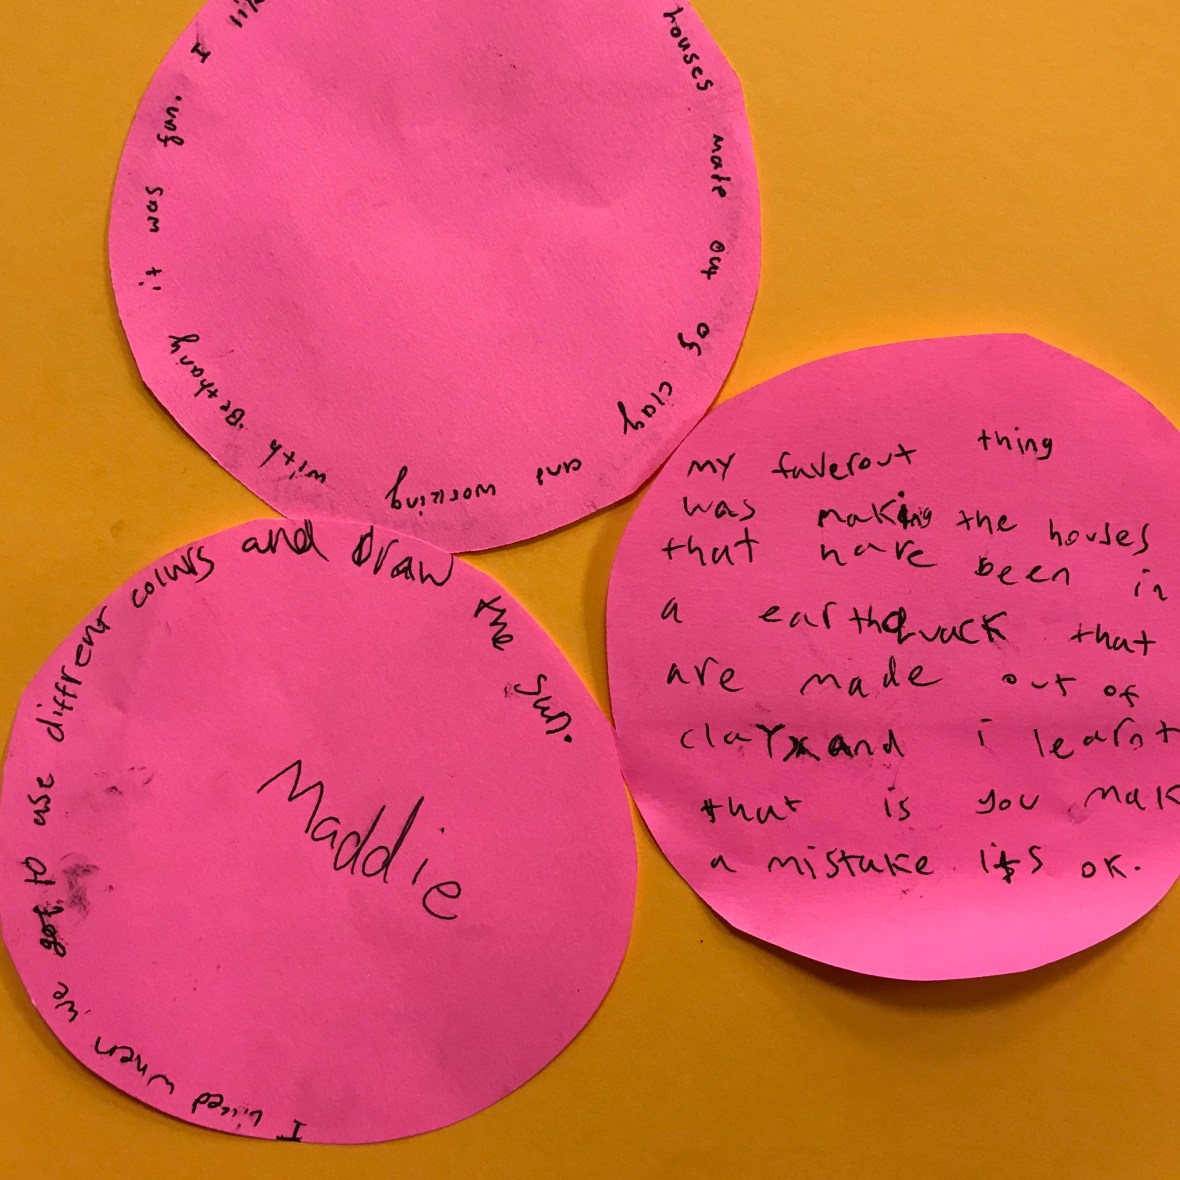 houses made out of clay and working with Bethany it was fun. I
my faverout thing
was making the houses
that have been in
a earthquack that
are made out of
clay and i learnt
that is you mak
a mistake its ok.
I liked when we got to use diffrent colurs and Draw the sun.
Maddie